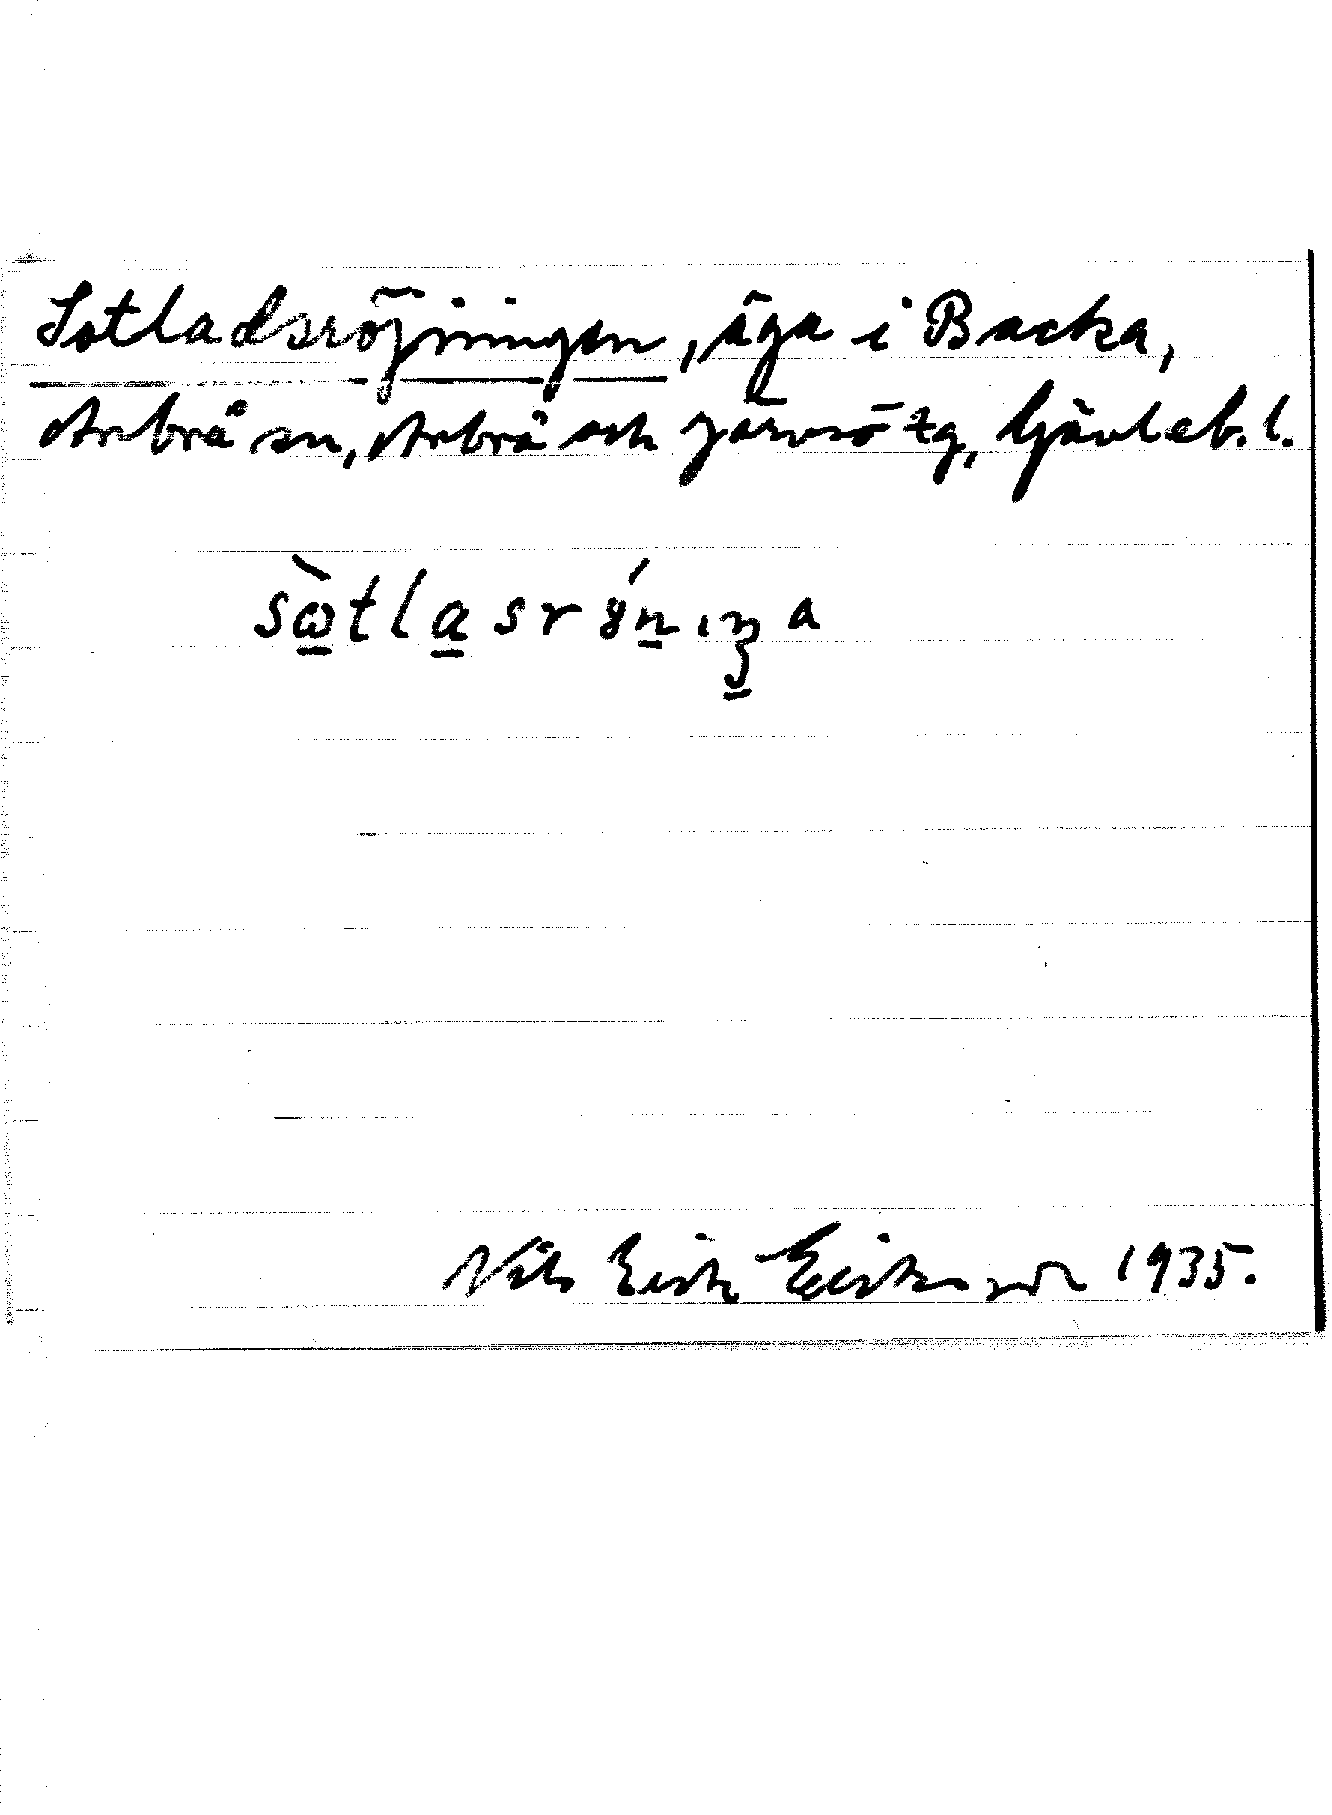 Sotladsröjningen, äga i Backa,
Arbrå sn, Arbrå och Järvsö tg, Gävleb. l.
sὼtlasrýnıŋa
Nils Erik Eriksson 1935.